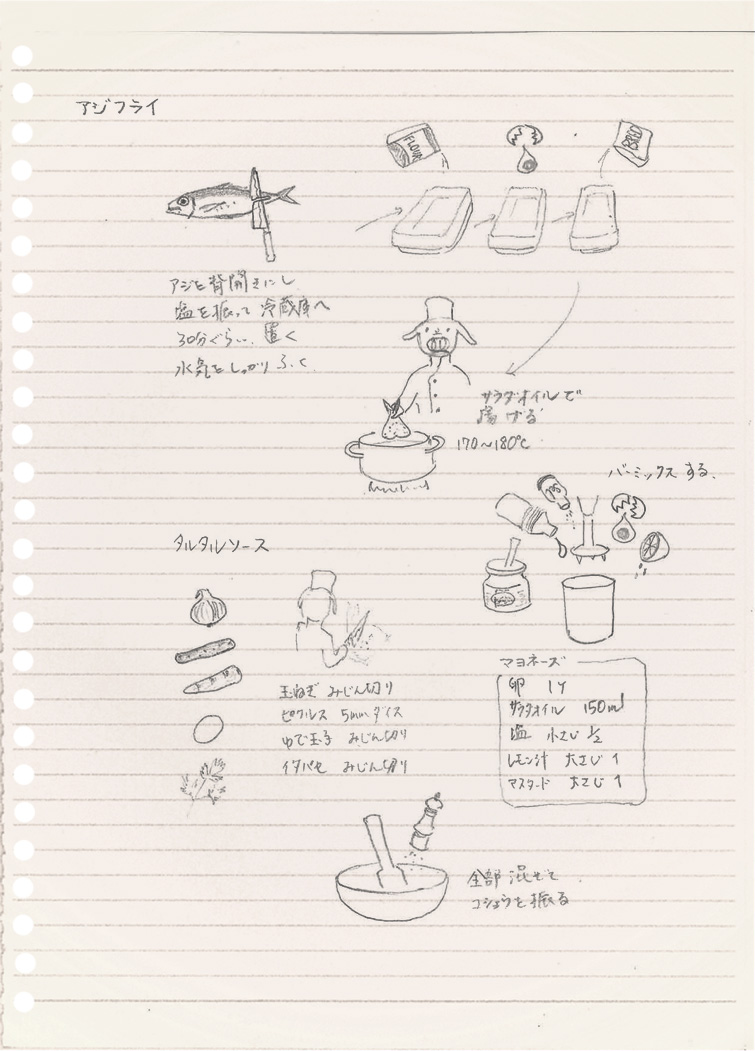 アジフライ
FLOUR
BREAD
アジを背開きにし
塩を振って 冷蔵庫へ
30分ぐらい 置く
水気をしっかりふく
サラダオイルで
揚げる
170〜180℃
バーミックスする。
タルタルソース
玉ねぎ みじん切り
ピクルス 5mmダイス
ゆで玉子 みじん切り
イタパセ みじん切り
マヨネーズ
卵 1ケ
サラダオイル 150ml
塩 小さじ 1/2
レモン汁 大さじ 1
マスタード 大さじ 1
全部 混ぜて
コショウを振る